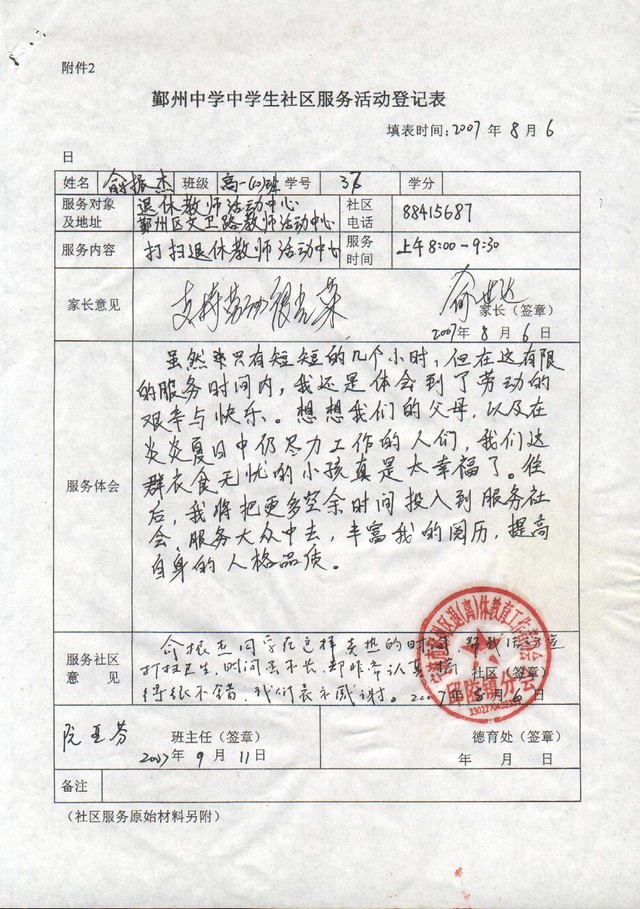 附件2
鄞州中学中学生社区服务活动登记表
填表时间:2007 年 8 月 6
日
姓名 俞振杰 班级 高一(10)班 学号 36 学分
服务对象及地址 退休教师活动中心 鄞州区文卫路教师活动中心 社区电话 88415687
服务内容 打扫退休教师活动中心 服务时间 上午8:00-9:30
家长意见 支持劳动很光荣
家长(签章)
2007年 8 月 6 日
虽然来只有短短的几个小时,但在这有限
的服务时间内,我还是体会到了劳动的
艰辛与快乐。想想我们的父母,以及在
炎炎夏日中仍尽力工作的人们,我们这
服务体会 群衣食无忧的小孩真是太幸福了。往
后,我将把更多空余时间投入到服务社
会,服务大众中去,丰富我的阅历,提高
自身的人格品质。
俞振杰同学在这样炎热的时间
服务社区意见 打扫卫生,时间虽不长,却非常认真,
社区(签章)
得很不错,我们表示感谢。2007年 8 月 6 日
休教育工作
邱隘镇分会
阮亚芬 班主任(签章) 德育处(签章)
2007年 9 月 11日 年 月 日
备注
(社区服务原始材料另附)